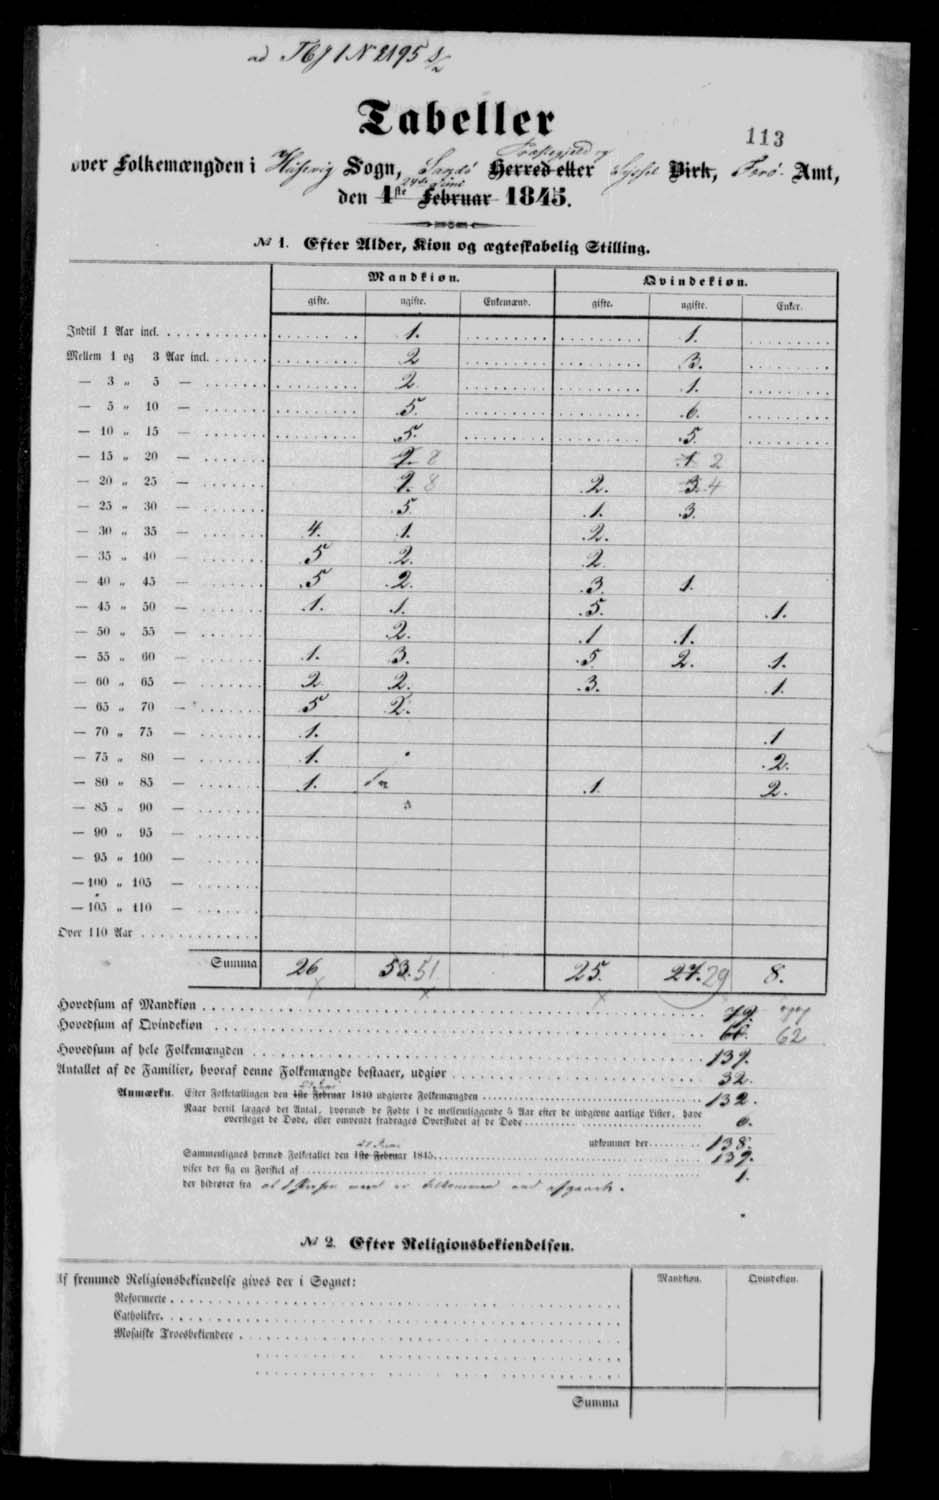 ad
Tabeller
113
over Folkemængden i Húsevig Sogn, Sandø Præstegjeld og Herred eller Syssel Birk, Færø Amt,
den 1ste Februar 1845.
№ 1. Efter Alder, Kion og ægteskabelig Stilling.
Mandkion. Qvindekion.
gifte. ugifte. Enkemænd. gifte. ugifte. Enker.
Indtil 1 Aar incl. 1. 1.
Mellem 1 og 3 Aar incl. 2 3.
— 3 „ 5 — 2 1.
— 5 „ 10 — 5. 6.
— 10 „ 15 — 5. 5.
— 15 „ 20 — 8 1 2
— 20 „ 25 — 8 2. 3. 4
— 25 „ 30 — 5. 1. 3.
— 30 „ 35 — 4. 1. 2.
— 35 „ 40 — 5 2. 2
— 40 „ 45 — 5 2. 3. 1.
— 45 „ 50 — 1. 1. 5. 1.
— 50 „ 55 — 2. 1 1.
— 55 „ 60 — 1. 3. 5 2. 1.
— 60 „ 65 — 2 2. 3. 1
— 65 „ 70 — 5 2.
— 70 „ 75 — 1. 1
— 75 „ 80 — 1. 2.
— 80 „ 85 — 1. 1 2.
— 85 „ 90 —
— 90 „ 95 —
— 95 „ 100 —
— 100 „ 105 —
— 105 „ 110 —
Over 110 Aar
Summa 26 53. 51 25. 27. 29 8.
Hovedsum af Mandkion 79. 77
Hovedsum af Qvindekion 60. 62
Hovedsum af hele Folkemængden 139.
Antallet af de Familier, hvoraf denne Folkemængde bestaaer, udgiør 32.
Anmærkn. Efter Folketællingen den 1ste Februar 1840 udgiorde Folkemængden 132.
Naar dertil lægges det Antal, hvormed de Fødte i de mellemliggende 5 Aar efter de indgivne aarlige Lister, have
oversteget de Døde, eller omvendt fradrages Overskudet af de Døde 6.
udkommer der 138.
Sammenlignes hermed Folketallet den 1ste Februar 1845. 139.
viser der sig en Forskiel af 1.
der hidrører fra
№ 2. Efter Religionsbekiendelsen.
Af fremmed Religionsbekiendelse gives der i Sognet: Mandkion. Qvindekion.
Reformerte
Catholiker.
Mosaiske Troesbekiendere
Summa